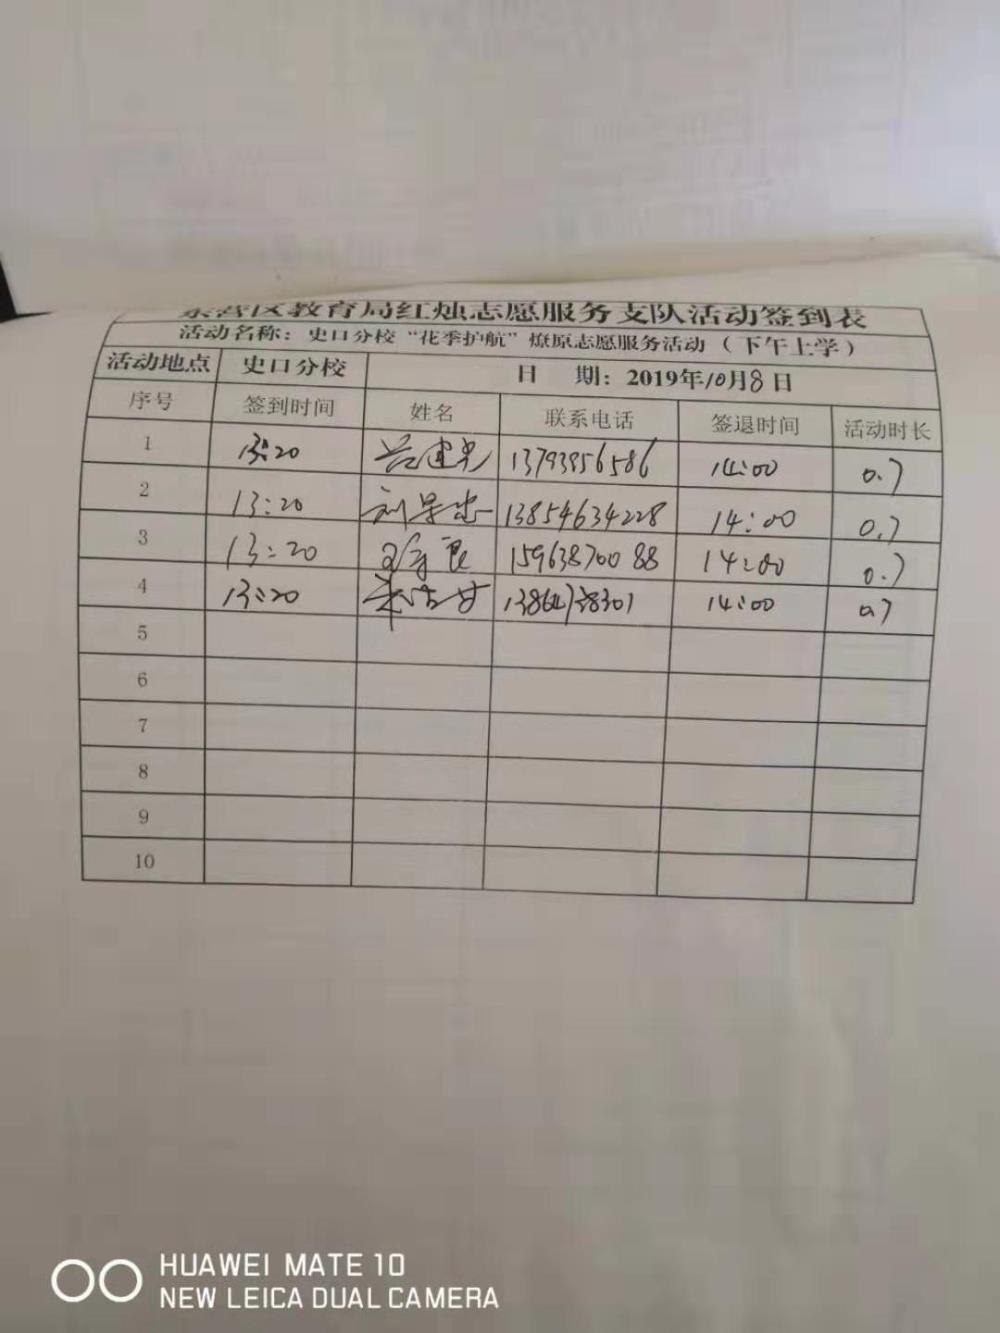 东营区教育局红烛志愿服务支队活动签到表
活动名称：史口分校“花季护航”燎原志愿服务活动（下午上学）
活动地点 史口分校 日 期：2019年10月8日
序号 签到时间 姓名 联系电话 签退时间 活动时长
1 13:20 13793956586 14:00 0.7
2 13:20 刘景忠 13854634228 14:00 0.7
3 13:20 15963870088 14:00 0.7
4 13:20 14:00 0.7
5
6
7
8
9
10
HUAWEI MATE 10
NEW LEICA DUAL CAMERA